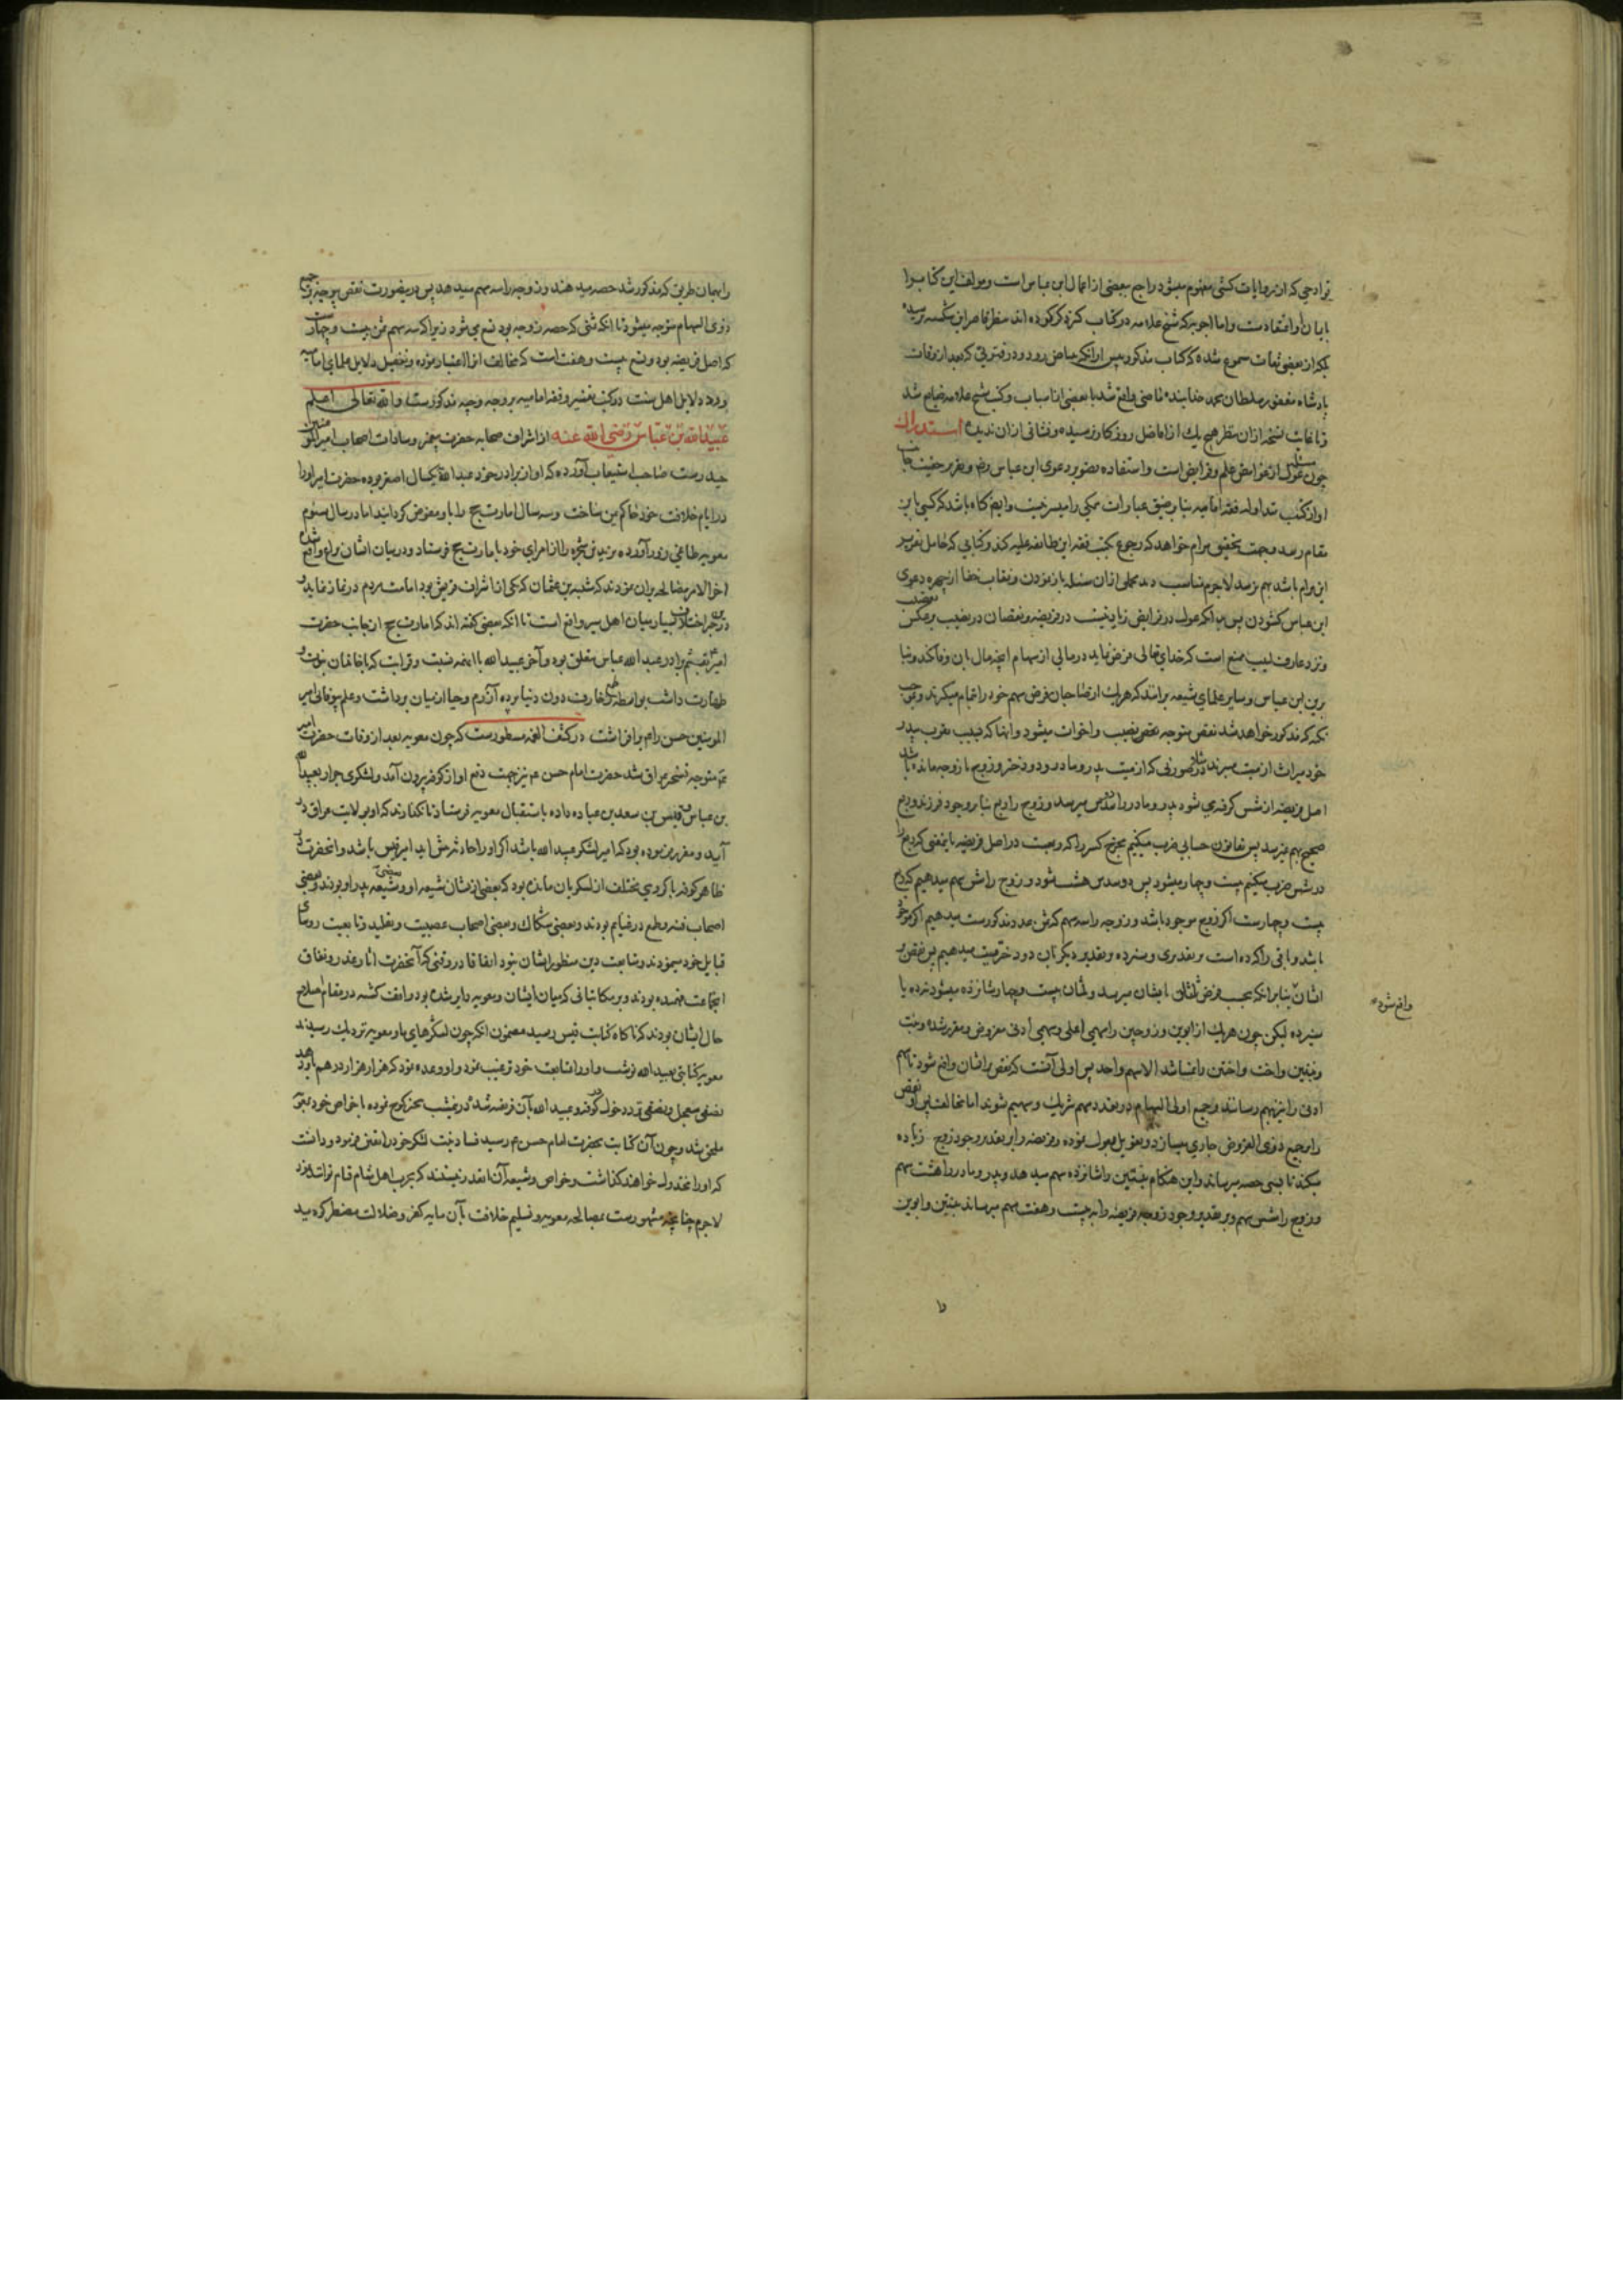 قوادحی که از روایات کشی مفهوم میشود راجع ببعضی از اعمال ابن عباس است و مولف این کتاب را
با یمان و اعتقاد است و اما اجوبه که شیخ علامه در کتاب کبیر ذکر کرده اند بنظر قاصر این شکسته نرسیده
بلکه از بعضی ثقات مسموع شده که کتاب مذکور پس از آنکه بیاض رود در فترتی که بعد از وفات
پادشاه مغفور سلطان محمد خدابنده ماضی واقع شد با بعضی از اسباب و کتب شیخ علامه ضایع شد
و تا غایت نسخه از آن بنظر هیچ یک از افاضل روزگار نرسیده و نشانی از آن ندیده استدراک
چون مسئله عول از غوامض علم فرایض است و استفاده تصویر دعوی ابن عباس رض و تقریر حقیت جانب
او از کتب متداوله فقه امامیه بنا بر ضیق عبارات همکی را میسر نیست و ایضا گاه باشد که کسی باین
مقام رسد و جهت تحقیق مرام خواهد که رجوع بکتب فقه این طائفه علیه کند و کتابی که حامل تقریر
این مرام باشد بهم نرسد لاجرم مناسب دید مجملی از آن مسئله باز نمودن و نقاب خفا از چهره دعوی
ابن عباس کشودن پس بدانکه عول در فرایض زیادتیست در فریضه و نقصان در نصیب و تعصیب بر عکس
و نزد عارف لبیب ممتنع است که خدای تعالی فرض نماید در مالی از سهام آنچه مال بآن وفا نکند و بنا
برین ابن عباس و سایر علمای شیعه برانند که هریک از صاحبان فرض سهم خود را تمام میگیرند و بموجب
نکته که مذکور خواهد شد نقص متوجه نصیب بنات و اخوات میشود و آنها که بسبب تقرب بپدر
خود میراث از میت میبرند مثلا در صورتی که از میت پدر و مادر و دو دختر و زوج یا زوجه مانده باشد
اصل فریضه از شش گرفته می شود پدر و مادر را دو سدس میرسد و زوج را ربع بنا بر وجود فرزند و ربع
صحیح بهم نمیرسد پس بقانون حسابی ضرب میکنیم مخرج کسر را که ربعست در اصل فریضه یا نصفی که ربع را
در شش ضرب میکنیم بیست و چهار میشود پس دو سدس هشت شود و زوج را شش سهم میدهیم که ربع
بیست و چهار است اگر زوج موجود باشد و زوجه را سه سهم که ثمن عدد مذکور است میدهیم اگر موجود
باشد و باقی را که ده است بر تقدیری و سیزده بر تقدیر دیگر بآن دو دختر میت میدهیم پس نقص بر
ایشان بنا برآنکه بحسب فرض ثلثان بایشان میرسد و ثلثان بیست و چهار شانزده میشود نه ده یا
سیزده لیکن چون هریک از ابوین و زوجین را سهمی اعلی و سهمی ادنی مفروض و مقرر شده و بنت
و بنتین و اخت و اختین را نمیباشد الا سهم واحد پس اولی آنست که نقص بر ایشان واقع شود تا سهم
ادنی را نیز بهم رسانند و جمیع اولی السهام در تعدد سهم شریک و سهیم شوند اما مخالف پس او نقص
را بر جمیع ذوی الفروض جاری میسازد و بقول بعول نموده فریضه را بر تقدیر وجود زوج زیاده
میکند تا بسی حصه میرساند و این هنگام بنتین را شانزده سهم میدهد و پدر و مادر را هشت سهم
و زوج را شش سهم و بر تقدیر وجود زوجه فریضه را به بیست و هفت سهم میرساند بنتین و ابوین
واقع شود
را بهمان طریق که مذکور شد حصه میدهند و زوجه را سه سهم میدهد پس درینصورت نقص بر جمیع
ذوی السهام متوجه میشود تا آنکه ثمنی که حصه زوجه بود تسع می شود زیرا که سه سهم ثمن بیست و چهارست
که اصل فریضه بود و تسع بیست و هفت است که مخالف آنرا اعتبار نموده و تفصیل دلایل علمای امامیه
و رد دلایل اهل سنت در کتب تفسیر و فقه امامیه بر وجه وجیه مذکورست والله تعالی اعلم
عبیدالله بن عباس رضی الله عنه از اشراف صحابه حضرت پیغمبر و سادات اصحاب امیرالمؤمنین
حیدرست صاحب استیعاب آورده که او از برادر خود عبدالله بیکسال اصغر بوده حضرت امیر او را
در ایام خلافت خود حاکم یمن ساخت و سه سال امارت حج را باو مفوض گردانید اما در سال سیوم
معویه طاغی زور آورده یزید بن شجره را از امرای خود بامارت حج فرستاد و در میان ایشان نزاع واقع شد
آخر الامر مصالحه بران نمودند که شیبه بن عثمان که یکی از اشراف قریش بود امامت مردم در نماز نماید و
درین خبر اختلاف بسیار میان اهل سیر واقع است تا آنکه بعضی گفته اند که امارت حج از جانب حضرت
امیر بقثم برادر عبدالله عباس متعلق بود و آخر عبیدالله با این همه نسبت و قرابت که با خاندان نبوت و
طهارت داشت بواسطه زخارف دون دنیا پرده آزرم و حیا از میان برداشت و علم بیوفائی امیر
المومنین حسن را برافراشت در کشف الغمه مسطورست که چون معویه بعد از وفات حضرت امیر
ع متوجه تسخیر عراق شد حضرت امام حسن ع نیز جهت دفع او از کوفه بیرون آمد و لشکری جرار بعبیدالله
بن عباس و قیس بن سعد بن عباده داده باستقبال معویه فرستاد تا نگذارند که او بولایت عراق در
آید و مقرر نموده بود که امیر لشکر عبیدالله باشد اگر او را حادثه پیش آید امیر قیس باشد و آنحضرت در
ظاهر کوفه با گروهی مختلف از لشکریان مانده بود که بعضی از ایشان شیعه او و شیعه پدر او بودند و بعضی
اصحاب فتنه و طمع در غنایم بودند و بعضی شکاک و بعضی اصحاب عصبیت و تقلید و تابعیت روسای
قبایل خود مینمودند و متابعت دین منظور ایشان نبود اتفاقا در وقتی که آنحضرت آثار غدر و نفاق
آنجماعت فهمیده بودند و بر مکاتباتی که میان ایشان و معویه دایر شده بود واقف گشته در مقام اصلاح
حال ایشان بودند که ناگاه کتابت قیس رسید مضمون آنکه چون لشکرهای ما و معویه نزدیک رسیدند
معویه کتابتی بعبیدالله نوشت و او را بمتابعت خود ترغیب نمود و او وعده نمود که هزار هزار درهم باو دهد
نصفی معجل و نصفی در وقت دخول کوفه و عبیدالله بآن فریفته شده در نیمشب تحریک کوچ نموده با خواص خود بمعویه
ملحق شد و چون آن کتابت بحضرت امام حسن ع رسید فساد نیت لشکر خود را متیقن نمود و دانست
که او را مخذول خواهند گذاشت و خواص و شیعه آن مقدار نیستند که بحرب اهل شام قیام توانند نمود
لاجرم چنانچه مشهورست بمصالحه معویه و تسلیم خلافت بآن مایه کفر و ضلالت مضطر گردید